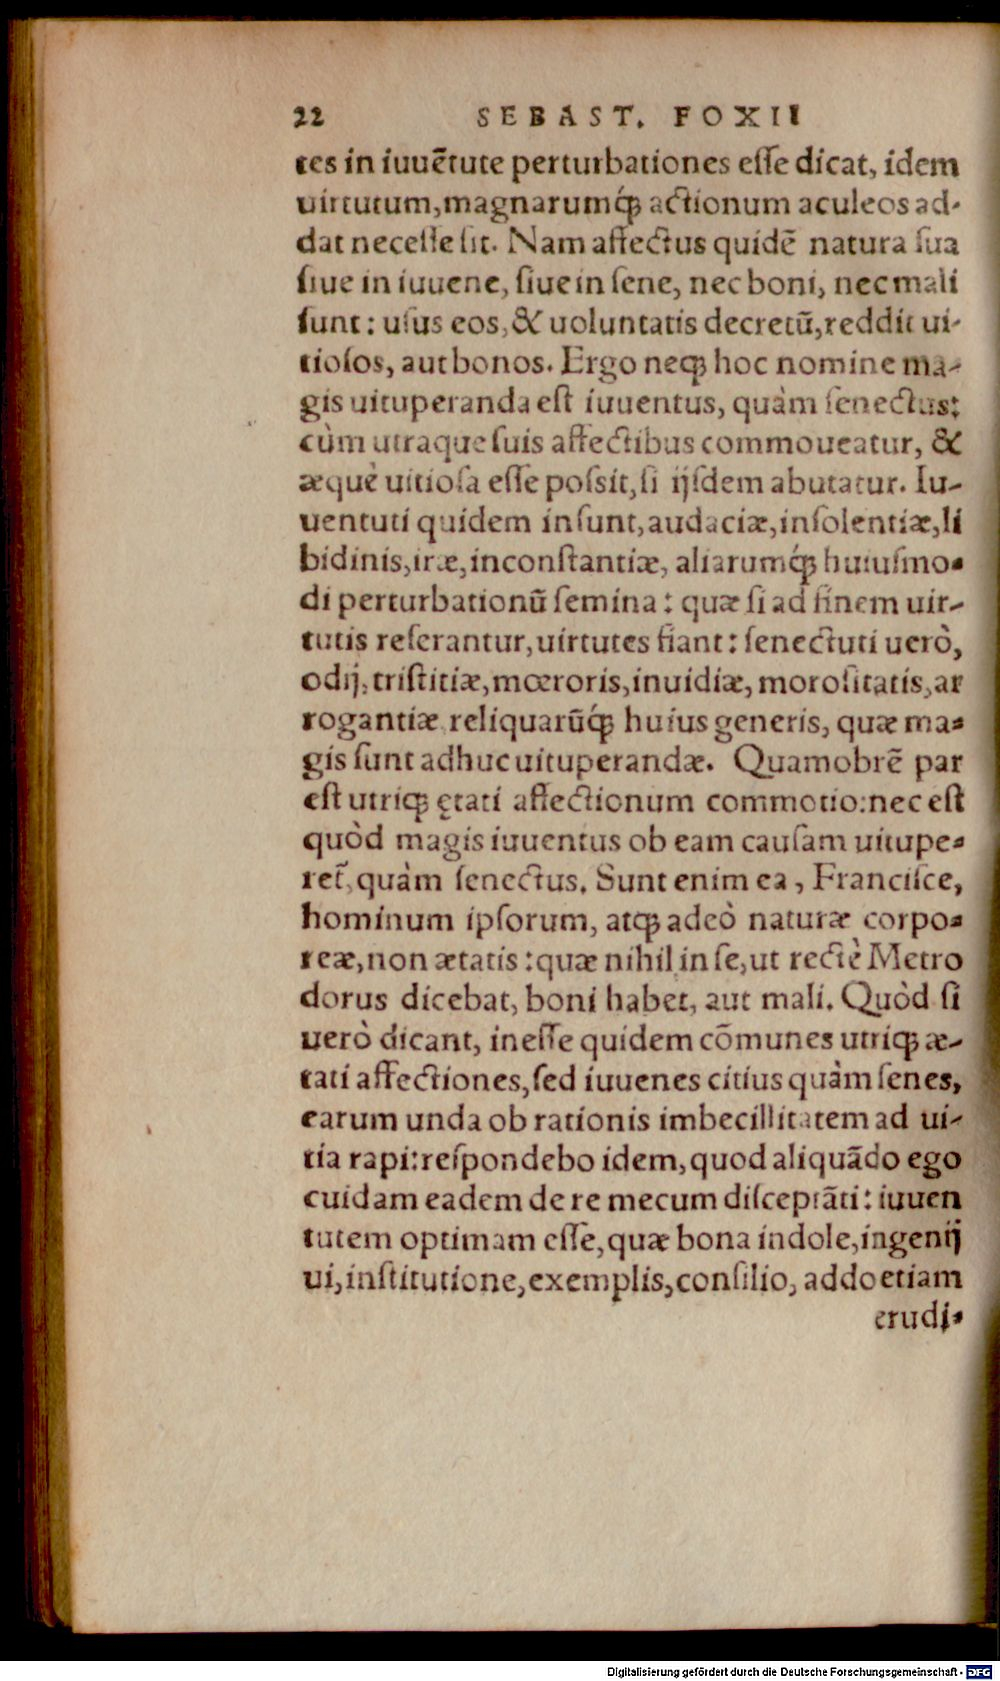 22 SEBAST. FOXII
tes in iuuẽtute perturbationes eſſe dicat, idem
uirtutum, magnarumq́ꝫ actionum aculeos ad-
dat neceſſe ſit. Nam affectus quidẽ natura ſua
ſiue in iuuene, ſiue in ſene, nec boni, nec mali
ſunt: uſus eos, & uoluntatis decretũ, reddit ui-
tioſos, aut bonos. Ergo neqꝫ hoc nomine ma-
gis uituperanda eſt iuuentus, quàm ſenectus:
cùm utraque ſuis affectibus commoueatur, &
æquè uitioſa eſſe poſsit, ſi ijſdem abutatur. Iu-
uentuti quidem inſunt, audaciæ, inſolentiæ, li
bidinis, iræ, inconſtantiæ, aliarumq́ꝫ huiuſmo-
di perturbationũ ſemina: quæ ſi ad finem uir-
tutis referantur, uirtutes fiant: ſenectuti uerò,
odij, triſtitiæ, mœroris, inuidiæ, moroſitatis, ar
rogantiæ reliquarũq́ꝫ huius generis, quæ ma-
gis ſunt adhuc uituperandæ. Quamobrẽ par
eſt utriqꝫ ętati affectionum commotio: nec eſt
quòd magis iuuentus ob eam cauſam uitupe-
ret̃, quàm ſenectus. Sunt enim ea, Franciſce,
hominum ipſorum, atqꝫ adeò naturæ corpo-
reæ, non ætatis: quæ nihil in ſe, ut rectè Metro
dorus dicebat, boni habet, aut mali. Quòd ſi
uerò dicant, ineſſe quidem cõmunes utriqꝫ æ-
tati affectiones, ſed iuuenes citius quàm ſenes,
earum unda ob rationis imbecillitatem ad ui-
tia rapi: reſpondebo idem, quod aliquãdo ego
cuidam eadem de re mecum diſceptãti: iuuen
tutem optimam eſſe, quæ bona indole, ingenij
ui, inſtitutione, exemplis, conſilio, addo etiam
erudi-
Digitalisierung gefördert durch die Deutsche Forschungsgemeinschaft - DFG